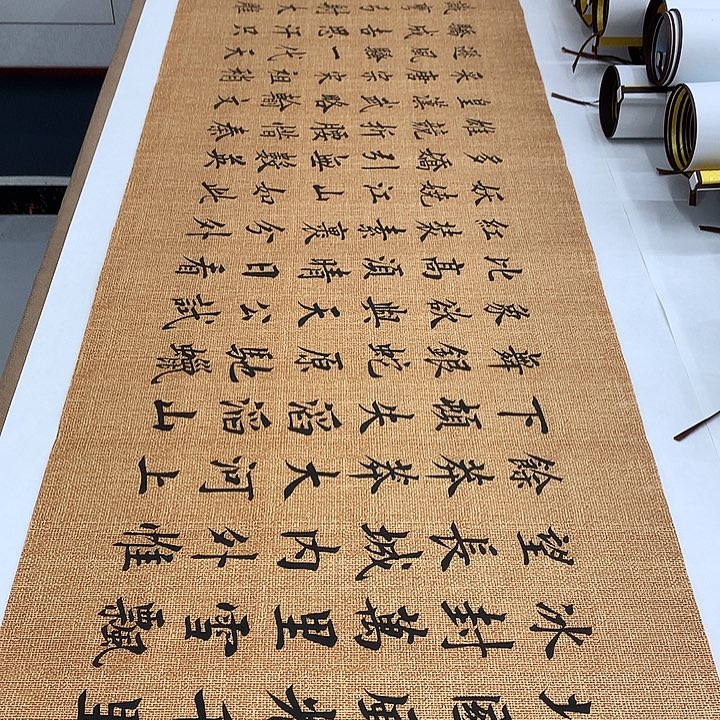 北國風光千里
冰封萬里雪飄
望長城內外惟
餘莽莽大河上
下頓失滔滔山
舞銀蛇原馳蠟
象欲與天公試
比高須晴日看
紅妝素裹分外
妖嬈江山如此
多嬌引無數英
雄競折腰惜秦
皇漢武略輸文
采唐宗宋祖稍
遜風騷一代天
驕成吉思汗只
識彎弓射大雕